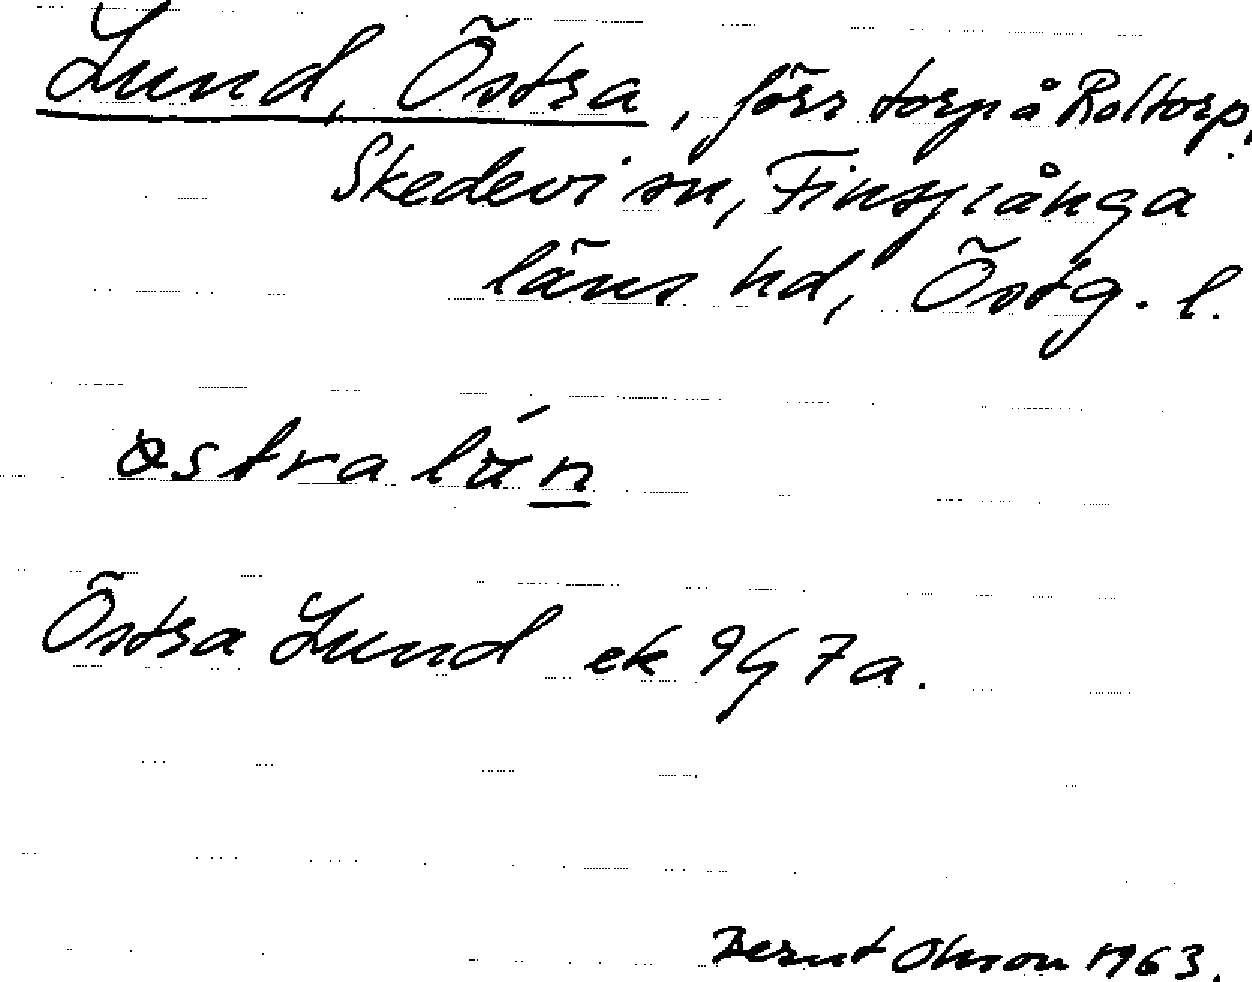 Lund, Östra, förr torp å Roltorp,
Skedevi sn, Finspånga
läns hd, Östg. l.
östra lún
Östra Lund ek 9G 7a.
Bernt Olsson 1963.